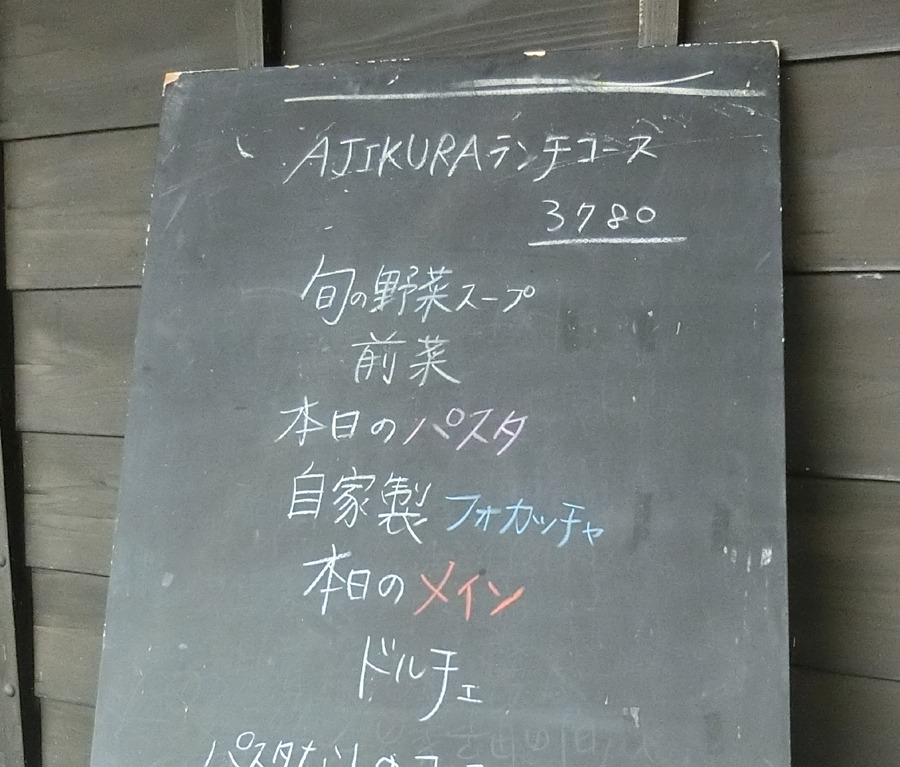 AJIKURAランチコース
3780
旬の野菜スープ
前菜
本日のパスタ
自家製フォカッチャ
本日のメイン
ドルチェ
パスタなしのコー